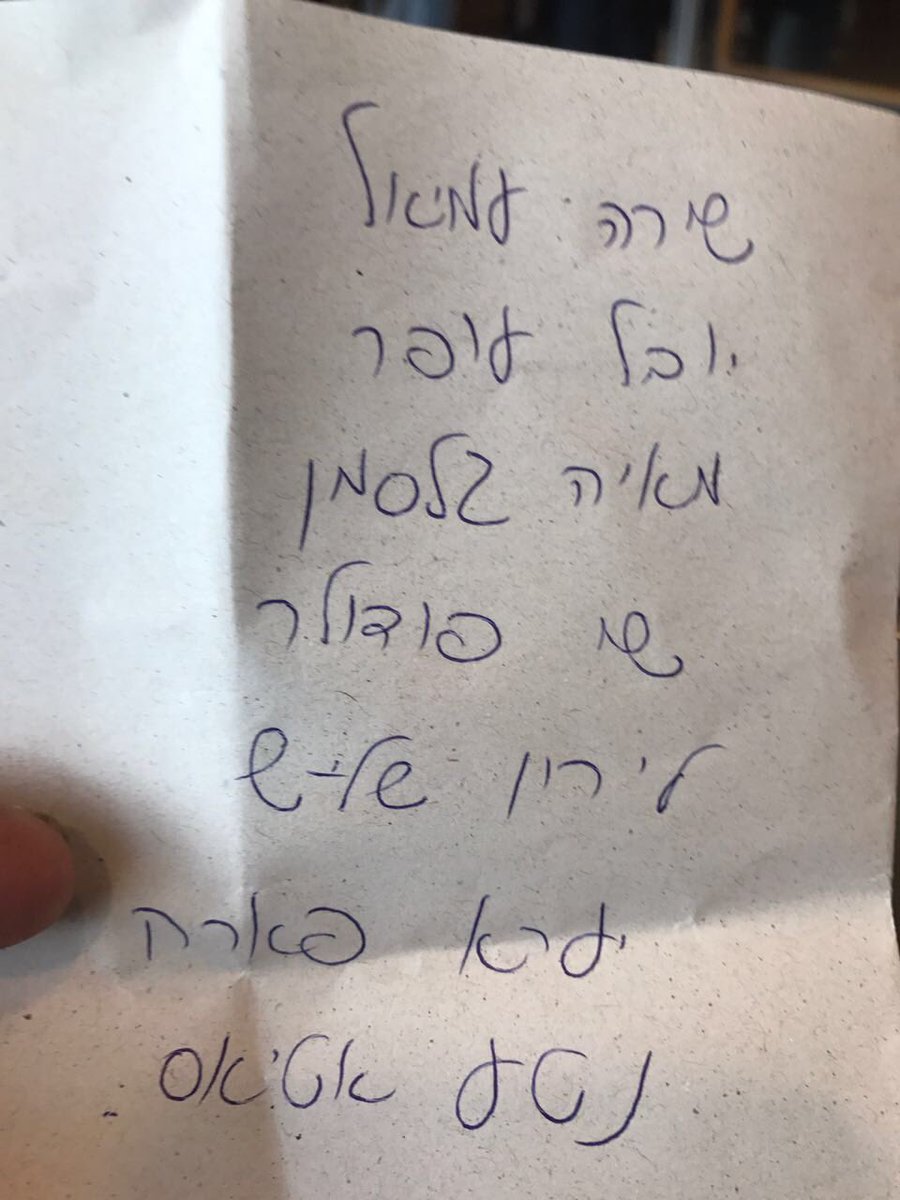 שירה עמיאל
יובל עופר
מאיה גלסמן
שי פודולר
לירין שליש
יערא פארח
נטע אטיאס